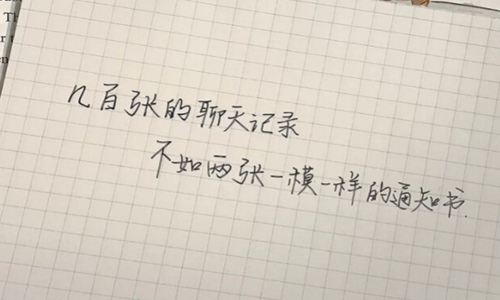 几百张的聊天记录
不如两张一模一样的通知书.